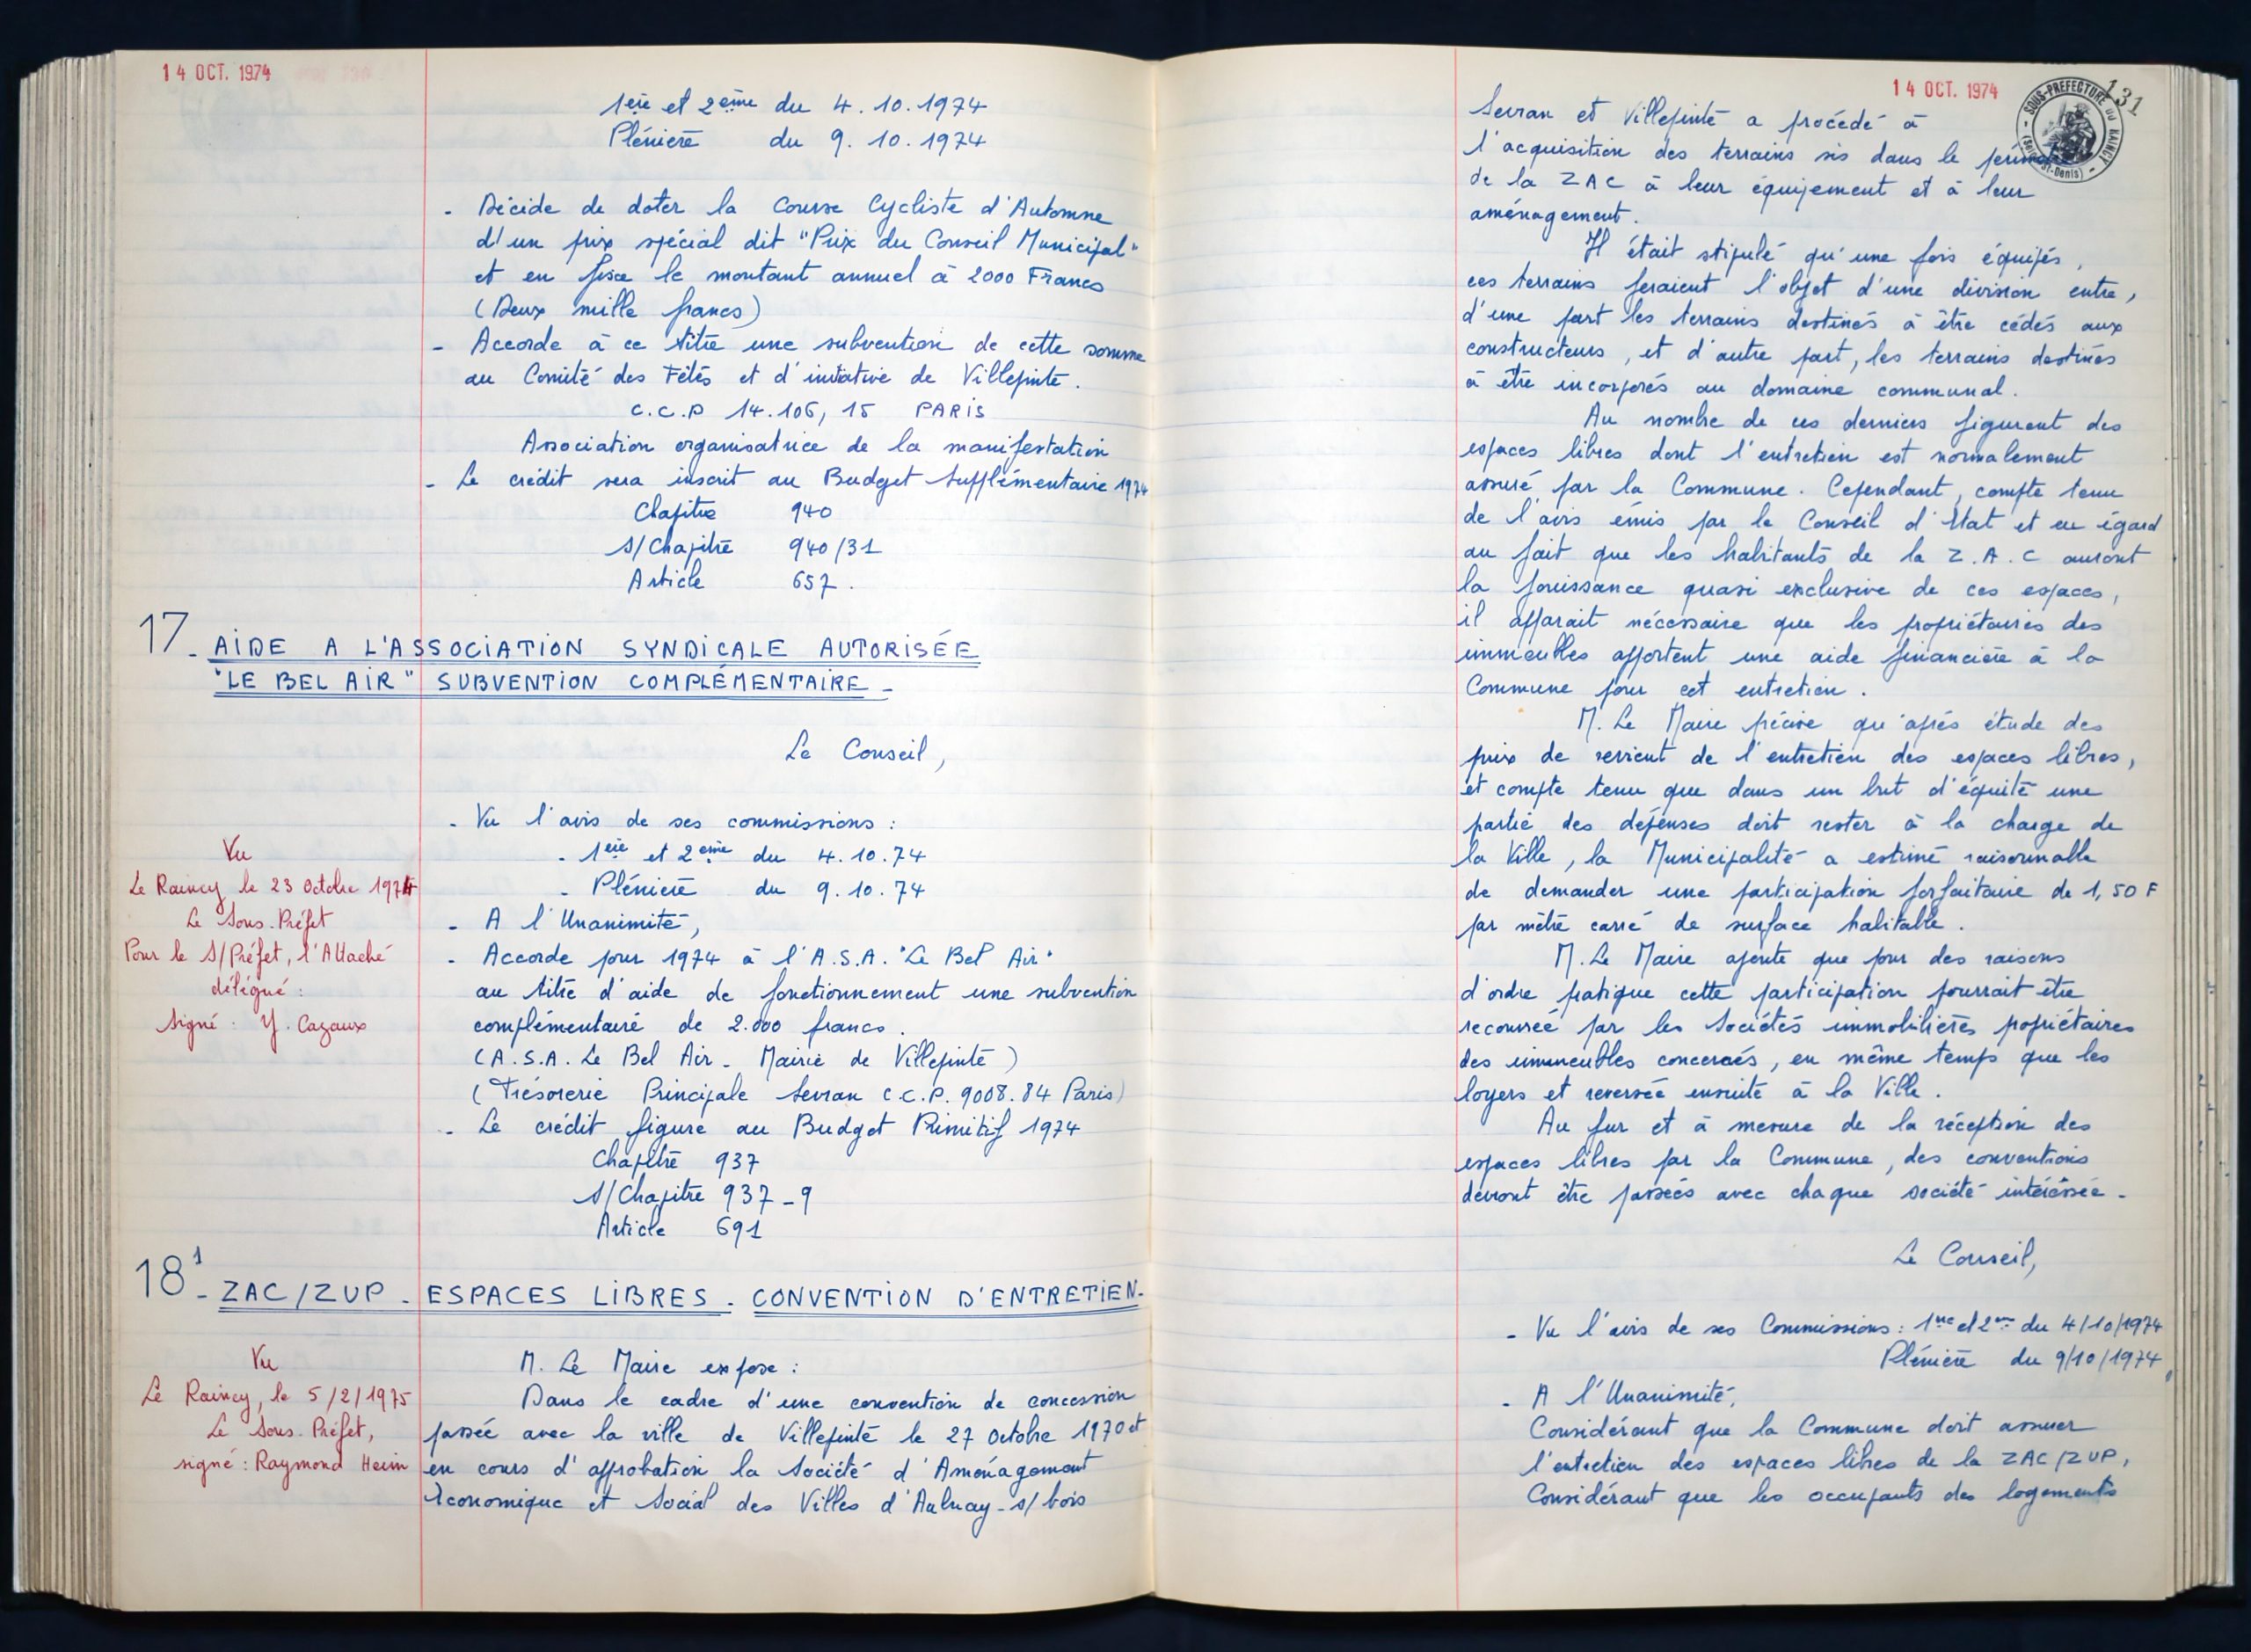 14 OCT. 1974
1ère et 2ème du 4.10.1974
Plénière du 9.10.1974
- Décide de doter la Course Cycliste d'Automne
d'un prix spécial dit "Prix du Conseil Municipal"
et en fixe le montant annuel à 2000 Francs
(Deux mille francs)
- Accorde à ce titre une subvention de cette somme
au Comité des Fêtes et d'initiative de Villepinte.
C.C.P 14.106,15 PARIS
Association organisatrice de la manifestation
- Le crédit sera inscrit au Budget Supplémentaire 1974
Chapitre 940
S/Chapitre 940/31
Article 657.
17 - AIDE A L'ASSOCIATION SYNDICALE AUTORISÉE
"LE BEL AIR" SUBVENTION COMPLÉMENTAIRE -
Le Conseil,
- Vu l'avis de ses commissions :
- 1ère et 2ème du 4.10.74
- Plénière du 9.10.74
- A l'Unanimité,
- Accorde pour 1974 à l'A.S.A. "Le Bel Air"
au titre d'aide de fonctionnement une subvention
complémentaire de 2.000 francs.
(A.S.A. Le Bel Air - Mairie de Villepinte)
(Trésorerie Principale Sevran C.C.P. 9008.84 Paris)
- Le crédit figure au Budget Primitif 1974
Chapitre 937
S/Chapitre 937-9
Article 691
Vu
Le Raincy le 23 Octobre 1974
Le Sous-Préfet
Pour le S/Préfet, l'Attaché
délégué :
Signé : Y. Cazaux
18¹ - ZAC/ZUP - ESPACES LIBRES - CONVENTION D'ENTRETIEN-
M. Le Maire expose :
Dans le cadre d'une convention de concession
passée avec la ville de Villepinte le 27 Octobre 1970 et
en cours d'approbation la Société d'Aménagement
Économique et Social des Villes d'Aulnay-s/bois
Vu
Le Raincy, le 5/2/1975
Le Sous-Préfet,
signé : Raymond Heim
14 OCT. 1974
131
SOUS-PREFECTURE DU RAINCY
(Seine-St-Denis)
Sevran et Villepinte a procédé à
l'acquisition des terrains sis dans le périmètre
de la ZAC à leur équipement et à leur
aménagement.
Il était stipulé qu'une fois équipés,
ces terrains feraient l'objet d'une division entre,
d'une part les terrains destinés à être cédés aux
constructeurs, et d'autre part, les terrains destinés
à être incorporés au domaine communal.
Au nombre de ces derniers figurent des
espaces libres dont l'entretien est normalement
assuré par la Commune. Cependant, compte tenu
de l'avis émis par le Conseil d'Etat et eu égard
au fait que les habitants de la Z.A.C auront
la jouissance quasi exclusive de ces espaces,
il apparait nécessaire que les propriétaires des
immeubles apportent une aide financière à la
Commune pour cet entretien.
M. Le Maire précise qu'après étude des
prix de revient de l'entretien des espaces libres,
et compte tenu que dans un but d'équité une
partie des dépenses doit rester à la charge de
la Ville, la Municipalité a estimé raisonnable
de demander une participation forfaitaire de 1,50 F
par mètre carré de surface habitable.
M. Le Maire ajoute que pour des raisons
d'ordre pratique cette participation pourrait être
recouvrée par les Sociétés immobilières propriétaires
des immeubles concernés, en même temps que les
loyers et reversée ensuite à la Ville.
Au fur et à mesure de la réception des
espaces libres par la Commune, des conventions
devront être passées avec chaque société intéressée.
Le Conseil,
- Vu l'avis de ses Commissions : 1ère et 2ème du 4/10/1974
Plénière du 9/10/1974,
- A l'Unanimité,
Considérant que la Commune doit assurer
l'entretien des espaces libres de la ZAC/ZUP,
Considérant que les occupants des logements